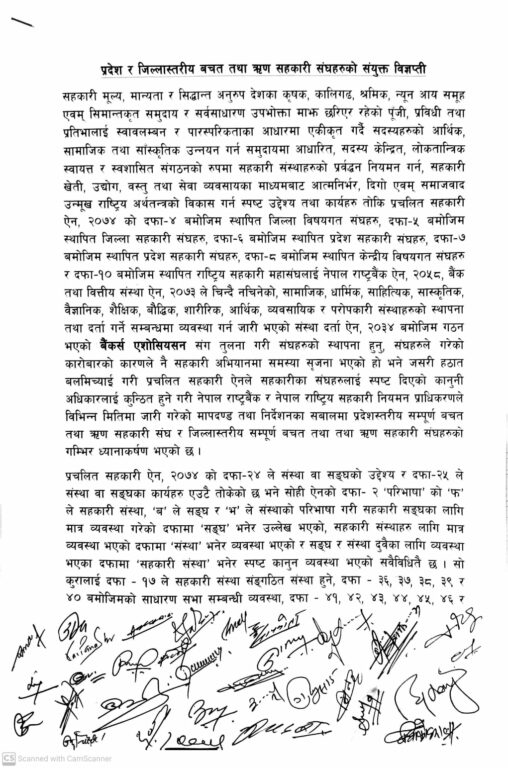 प्रदेश र जिल्लास्तरीय बचत तथा ऋण सहकारी संघहरुको संयुक्त विज्ञप्ती
सहकारी मूल्य, मान्यता र सिद्धान्त अनुरुप देशका कृषक, कालिगढ, श्रमिक, न्यून आय समूह
एवम् सिमान्तकृत समुदाय र सर्वसाधारण उपभोक्ता माझ छरिएर रहेको पूंजी, प्रविधी तथा
प्रतिभालाई स्वावलम्बन र पारस्परिकताका आधारमा एकीकृत गर्दै सदस्यहरुको आर्थिक,
सामाजिक तथा सांस्कृतिक उन्नयन गर्न समुदायमा आधारित, सदस्य केन्द्रित, लोकतान्त्रिक
स्वायत्त र स्वशासित संगठनको रुपमा सहकारी संस्थाहरुको प्रर्वद्धन नियमन गर्न, सहकारी
खेती, उद्योग, वस्तु तथा सेवा व्यवसायका माध्यमबाट आत्मनिर्भर, दिगो एवम् समाजवाद
उन्मूख राष्ट्रिय अर्थतन्त्रको विकास गर्न स्पष्ट उद्देश्य तथा कार्यहरु तोकि प्रचलित सहकारी
ऐन, २०७४ को दफा-४ बमोजिम स्थापित जिल्ला विषयगत संघहरु, दफा-५ बमोजिम
स्थापित जिल्ला सहकारी संघहरु, दफा-६ बमोजिम स्थापित प्रदेश सहकारी संघहरु, दफा-७
बमोजिम स्थापित प्रदेश सहकारी संघहरु, दफा-८ बमोजिम स्थापित केन्द्रीय विषयगत संघहरु
र दफा-१० बमोजिम स्थापित राष्ट्रिय सहकारी महासंघलाई नेपाल राष्ट्रबैंक ऐन, २०५८, बैंक
तथा वित्तीय संस्था ऐन, २०७३ ले चिन्दै नचिनेको, सामाजिक, धार्मिक, साहित्यिक, सास्कृतिक,
वैज्ञानिक, शैक्षिक, बौद्धिक, शारीरिक, आर्थिक, व्यवसायिक र परोपकारी संस्थाहरुको स्थापना
तथा दर्ता गर्ने सम्बन्धमा व्यवस्था गर्न जारी भएको संस्था दर्ता ऐन, २०३४ बमोजिम गठन
भएको बैंकर्स एशोसियसन संग तुलना गरी संघहरुको स्थापना हुनु, संघहरुले गरेको
कारोबारको कारणले नै सहकारी अभियानमा समस्या सृजना भएको हो भने जसरी हठात
बलमिच्याई गरी प्रचलित सहकारी ऐनले सहकारीका संघहरुलाई स्पष्ट दिएको कानुनी
अधिकारलाई कुन्ठित हुने गरी नेपाल राष्ट्रबैंक र नेपाल राष्ट्रिय सहकारी नियमन प्राधिकरणले
विभिन्न मितिमा जारी गरेको मापदण्ड तथा निर्देशनका सबालमा प्रदेशस्तरीय सम्पूर्ण बचत
तथा ऋण सहकारी संघ र जिल्लास्तरीय सम्पूर्ण बचत तथा तथा ऋण सहकारी संघहरुको
गम्भिर ध्यानाकर्षण भएको छ ।
प्रचलित सहकारी ऐन, २०७४ को दफा-२४ ले संस्था वा सङ्घको उद्देश्य र दफा-२५ ले
संस्था वा सङ्घका कार्यहरु एउटै तोकेको छ भने सोही ऐनको दफा- २ 'परिभाषा' को 'फ'
ले सहकारी संस्था, 'ब' ले सङ्घ र 'भ' ले संस्थाको परिभाषा गरी सहकारी सङ्घका लागि
मात्र व्यवस्था गरेको दफामा 'सङ्घ' भनेर उल्लेख भएको, सहकारी संस्थाहरु लागि मात्र
व्यवस्था भएको दफामा 'संस्था' भनेर व्यवस्था भएको र सङ्घ र संस्था दुवैका लागि व्यवस्था
भएका दफामा 'सहकारी संस्था' भनेर स्पष्ट कानुन व्यवस्था भएको सर्वविदितै छ । सो
कुरालाई दफा - १७ ले सहकारी संस्था संङ्गठित संस्था हुने, दफा - ३६, ३७, ३८, ३९ र
४० बमोजिमको साधारण सभा सम्बन्धी व्यवस्था, दफा - ४१, ४२, ४३, ४४, ४५, ४६ र
CS Scanned with CamScanner